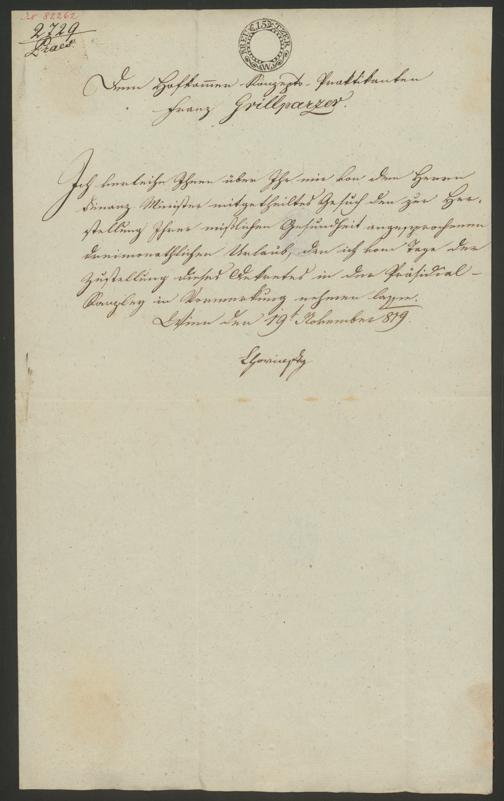 No 82262
2729
Praes
15
Dem Hofkammer Konzepts-Praktikanten
Franz Grillparzer.
Ich verleihe Ihnen über Ihr mir von dem Herrn
Finanz Minister mitgetheiltes Gesuch den zur Her-
stellung Ihrer mißlichen Gesundheit angesprochenen
dreimonathlichen Urlaub, den ich vom Tage der
Zustellung dieses Dekretes in der Präsidial-
Kanzley in Vormerkung nehmen lasse.
Wien den 19t November 819.
Chorinsky